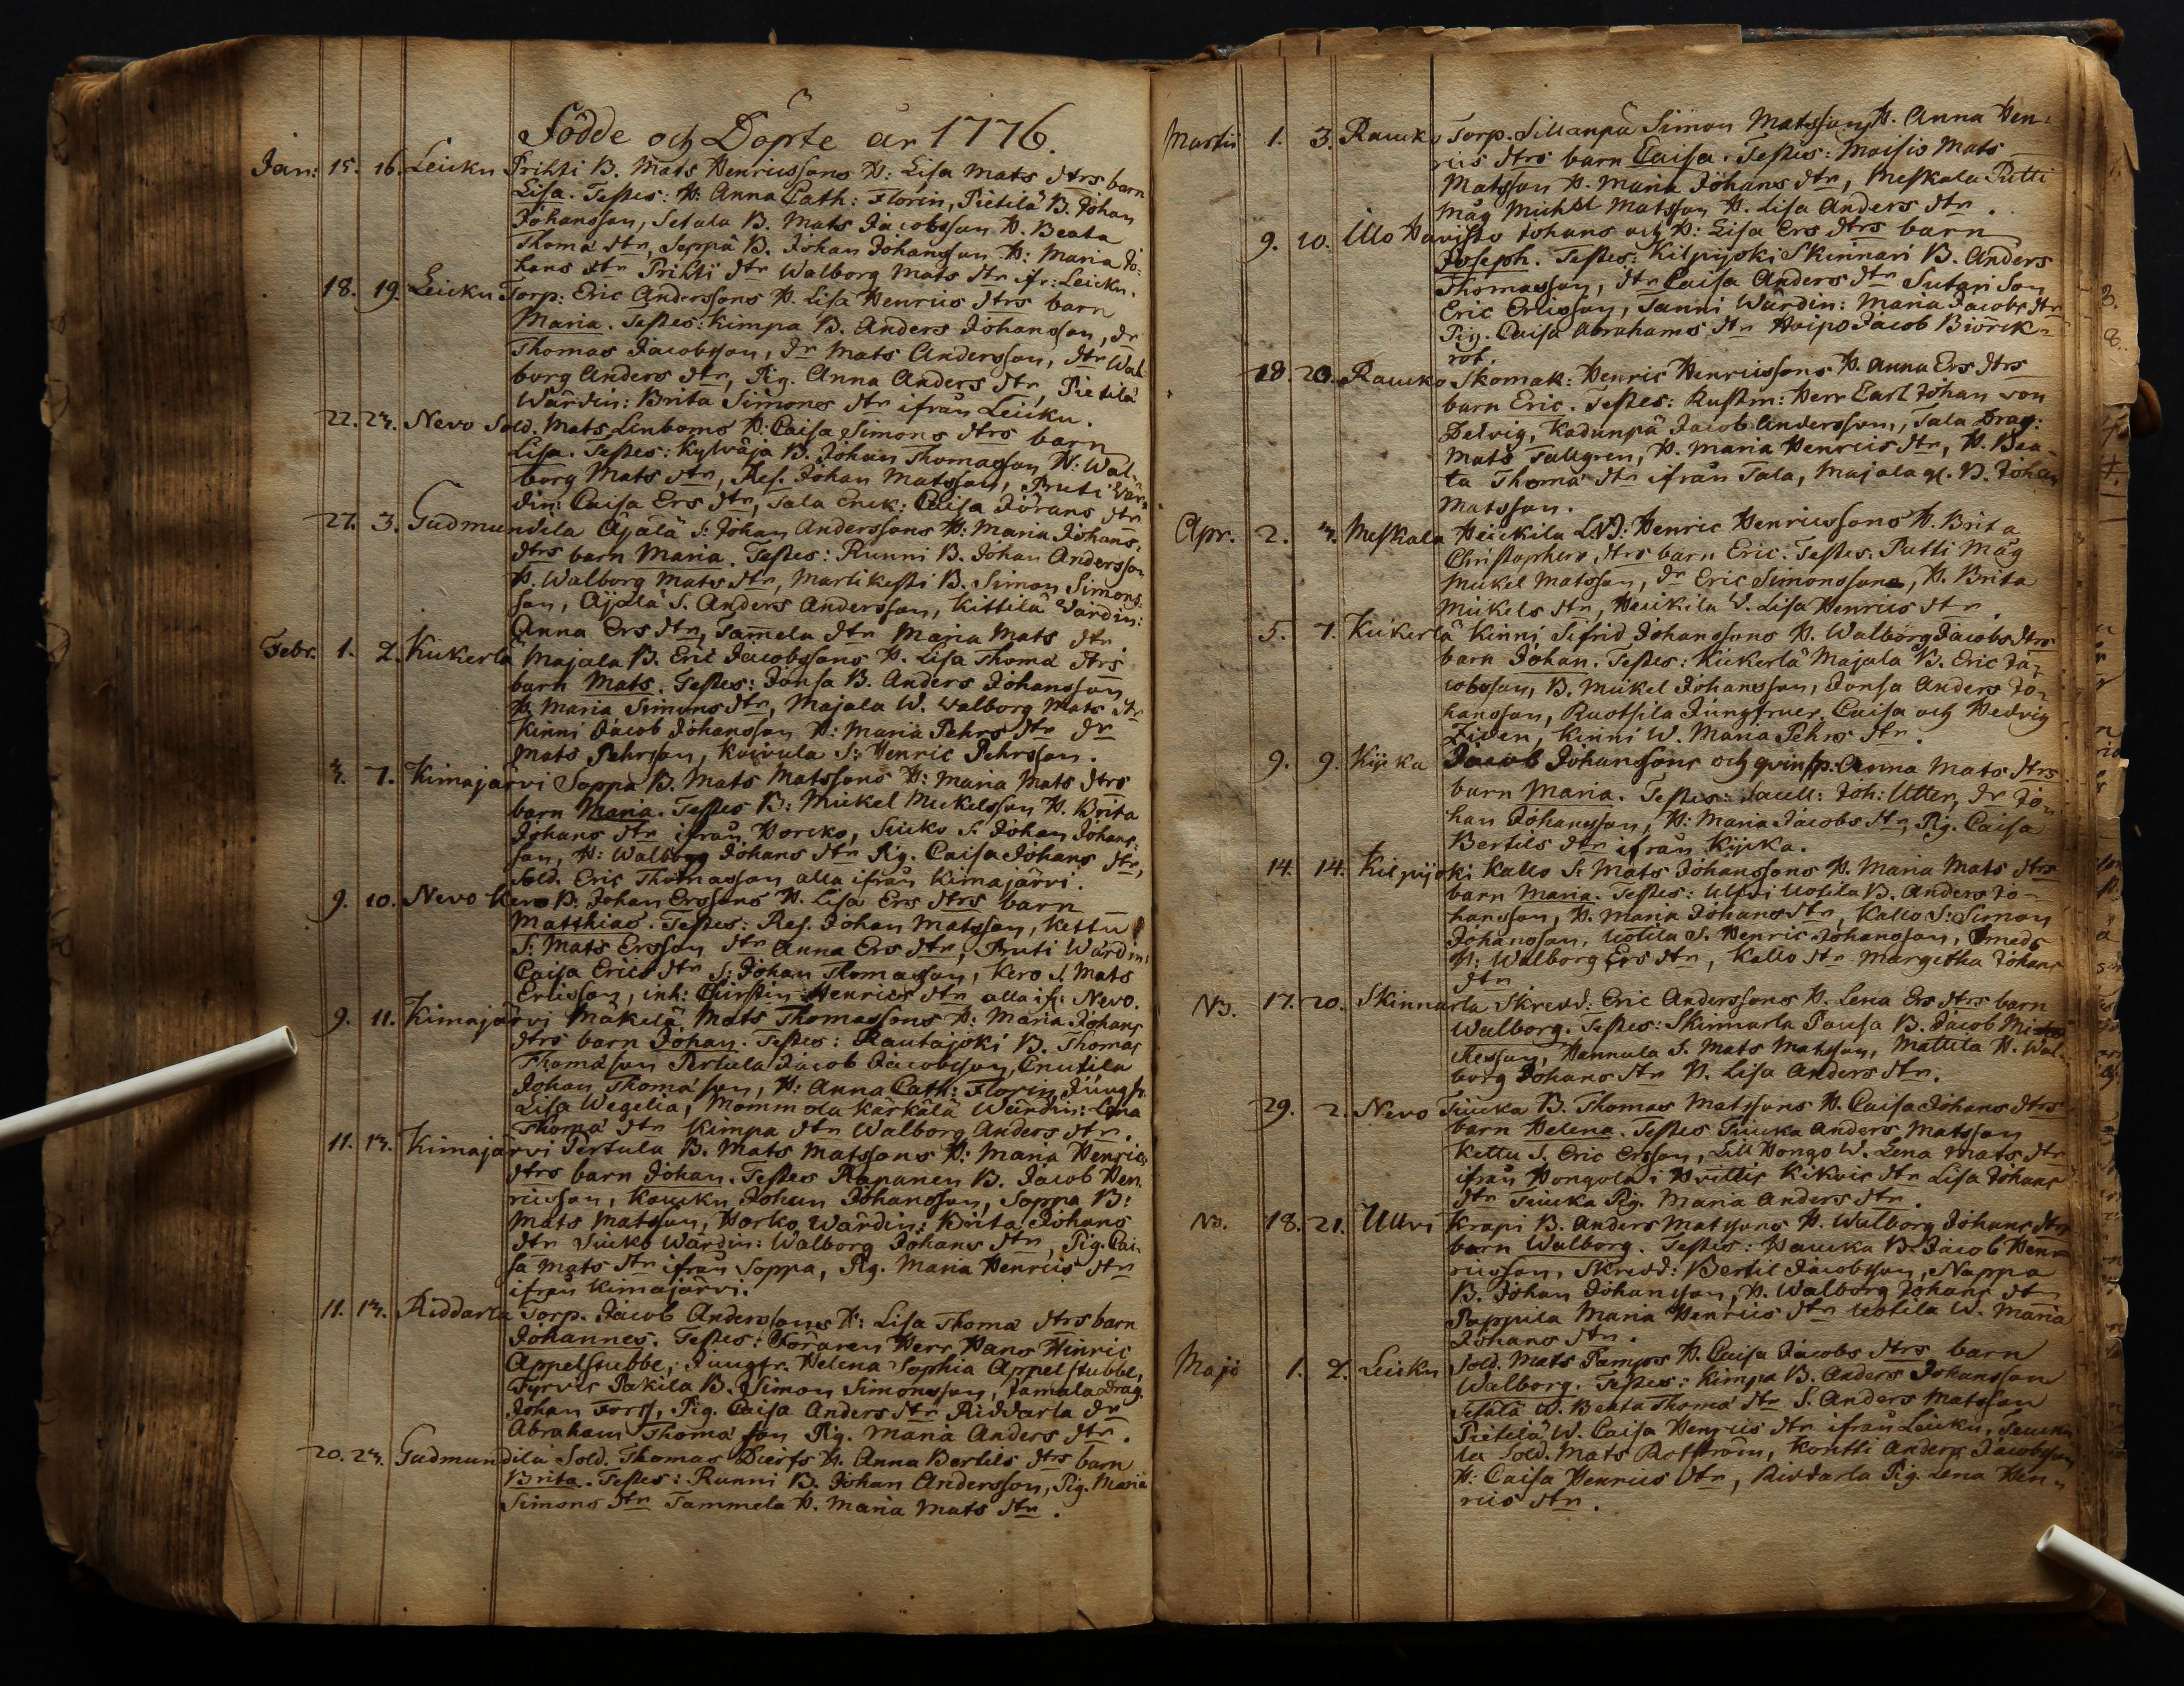 Födde och Döpte år 1776.
Jan: 15. 16. Leiku Prihti B. Mats Henricssons H: Lisa Mats dtrs barn
Lisa. Testes: H: Anna Cath: Florin, Pietilä B. Johan
Johansson, Setala B. Mats Jacobsson H. Beata
Thoma dtr, Seppä B. Johan Johansson H: Maria Jo-
hans dtr Prihti dtr Walborg Mats dtr ifr: Leiku.
18. 19. Leiku Torp: Eric Anderssons H. Lisa Henrics dtrs barn
Maria. Testes: Kimpa B. Anders Johansson, dr
Thomas Jacobsson, dr Mats Andersson, dtr Wal-
borg Anders dtr, Pig. Anna Anders dtr, Pietilä
Wärdin: Brita Simons dtr ifrån Leiku.
22. 23. Nevo Sold. Mats Linboms H: Caisa Simons dtrs barn
Lisa. Testes: Kylväja B. Johan Thomasson H: Wal-
borg Mats dtr, Res. Johan Matsson, Pruti Wär-
din: Caisa Ers dtr, Tala Enk: Caisa Jörans dtr
27. 3. Gudmundila Äjälä S. Johan Anderssons H: Maria Johans
dtrs barn Maria. Testes: Runni B. Johan Andersson
H. Walborg Mats dtr, Martikesti B. Simon Simons-
son, Äjälä S. Anders Andersson, Kittilä Wärdin:
Anna Ers dtr, Tamela dtr Maria Mats dtr.
Febr. 1. 2. Kiikerlä Majala B. Eric Jacobssons H. Lisa Thoma dtrs
barn Mats. Testes: Jonsa B. Anders Johansson
H. Maria Simons dtr, Majala W. Walborg Mats dtr
Kinni Jacob Johansson H: Maria Pehrs dtr dr
Mats Pehrson, Koivula S: Henric Pehrsson.
3. 7. Kimajärvi Soppa B. Mats Matssons H: Maria Mats dtrs
barn Maria. Testes B: Mickel Mickelsson H. Brita
Johans dtr ifrån Horcko, Siuko S: Johan Johans-
son, H: Walborg Johans dtr Pig. Caisa Johans dtr,
Sold. Eric Thomasson alla ifrån Kimajärvi.
9. 10. Nevo Kero B: Johan Erssons H. Lisa Ers dtrs barn
Matthias. Testes: Res. Johan Matsson, Kettu
S: Mats Ersson dtr Anna Ers dtr, Pruti Wärdin:
Caisa Erics dtr S: Johan Thomasson, Kero S. Mats
Ericsson, inh: Christin Henrics dtr alla if: Nevo.
9. 11. Kimajärvi Mäkelä Mats Thomassons H: Maria Johans
dtrs barn Johan. Testes: Rautajoki B. Thomas
Thomasson Pertula Jacob Jacobsson, Erutila
Johan Thomasson, H: Anna Cath: Florin, Jungfr.
Lisa Wegelia, Mommola Kärkälä Wärdin: Lena
Thoma dtr Kimpa dtr Walborg Anders dtr.
11. 13. Kimajärvi Pertula B. Mats Matssons H: Maria Henrics
dtrs barn Johan. Testes Rapanen B. Jacob Hen-
ricsson, Kaucku Johan Johansson, Soppa B:
Mats Matsson, Horko Wärdin: Brita Johans
dtr Siuko Wärdin: Walborg Johans dtr, Pig. Cai-
sa Mats dtr ifrån Soppa, Pig. Maria Henrics dtr
ifrån Kimajärvi.
11. 13. Riddarla Torp. Jacob Anderssons H: Lisa Thoma dtrs barn
Johannes. Testes: Föraren Herr Hans Hinric
Appelstubbe, Jungfr. Helena Sophia Appelstubbe,
Tyrvis Pakila B. Simon Simonsson, Jamala Drag.
Johan Forss, Pig. Caisa Anders dtr Riddarla dr
Abraham Thomasson Pig. Maria Anders dtr.
20. 23. Gudmundila Sold. Thomas Dierfs H. Anna Bertils dtrs barn
Brita. Testes: Runni B. Johan Andersson, Pig. Maria
Simons dtr Tammela H. Maria Mats dtr.
Martii 1. 3. Raucko Torp. Sillanpä Simon Matssons H. Anna Hen-
rics dtrs barn Caisa. Testes: Moisio Mats
Matsson H. Maria Johans dtr, Meskala Putti
Måg Michel Matsson H. Lisa Anders dtr.
9. 10. Illo Havisto Johans och H: Lisa Ers dtrs barn
Joseph. Testes: Kilpijoki Skinnari B. Anders
Thomasson, dtr Caisa Anders dtr Sutari Son
Eric Ericsson, Tanni Wärdin: Maria Jacobs dtr
Pig. Caisa Abrahams dtr Hoipo Jacob Biörck-
rot.
18. 20. Raucko Skomak: Henric Henricssons H. Anna Ers dtrs
barn Eric. Testes: Rustm: Herr Carl Johan von
Delvig, Kadunpä Jacob Andersson, Tala Drag:
Mats Tallgren, H. Maria Henrics dtr, H. Bea-
ta Thoma dtr ifrån Tala, Majala gl. B. Johan
Matsson.
Apr. 2. 3. Meskala Heickila L.B: Henric Henricssons H. Brita
Christophers dtrs barn Eric. Testes: Putti Måg
Mickel Matsson, dr Eric Simonssons, H. Brita
Mickels dtr, Heickila W. Lisa Henrics dtr.
5. 7. Kiikerlä Kinni Sifrid Johanssons H. Walborg Jacobs dtrs
barn Johan. Testes: Kiikerlä Majala B. Eric Ja-
cobsson, B. Mickel Johansson, Jonsa Anders Jo-
hansson, Ruotsila Jungfruer Caisa och Hedvig
Ziden, Kinni W. Maria Pehrs dtr.
9. 9. Kijka Jacob Johanssons och qvinsp. Anna Mats dtrs
barn Maria. Testes: Sacell: Joh: Utter, dr Jo-
han Johansson, H: Maria Jacobs dtr, Pig. Caisa
Bertils dtr ifrån Kijka.
14. 14. Kilpijoki Kallo S: Mats Johanssons H. Maria Mats dtrs
barn Maria. Testes: Ullvi Uotila B. Anders Jo-
hansson, H. Maria Johans dtr, Kallo S: Simon
Johansson, Uotila S. Henric Johansson, Smeds
H: Walborg Ers dtr, Kallo dtr Margetha Johans
dtr
NB. 17. 20. Skinnarla Skredd: Eric Anderssons H. Lena Ers dtrs barn
Walborg. Testes: Skinnarla Pausa B. Jacob Mi-
chesson, Hannula S. Mats Matsson, Mattila H. Wal-
borg Johans dtr H. Lisa Anders dtr.
29. 2. Nevo Tuucka B. Thomas Matssons H. Caisa Johans dtrs
barn Helena. Testes Tuucka Anders Matsson
Kettu S. Eric Ersson, Lill Hongo W. Lena Mats dtr
ifrån Hongola i Hvittis Kikois dtr Lisa Johans
dtr Tuucka Pig. Maria Anders dtr.
NB. 18. 21. Ullvi Krapi B. Anders Matssons H. Walborg Johans dtrs
barn Walborg. Testes: Haucka B. Jacob Hen-
ricsson, Skredd: Bertil Jacobsson, Nappa
B. Johan Johansson, H. Walborg Johans dtr
Pappila Maria Henrics dtr Uotila W. Maria
Johans dtr.
Maji 1. 2. Leiku Sold. Mats Pamps H. Caisa Jacobs dtrs barn
Walborg. Testes: Kimpa B. Anders Johansson
Setälä W. Beata Thoma dtr S. Anders Matsson
Pietilä W. Caisa Henrics dtr ifrån Leiku,
la Sold. Mats Rotström, Kontti Anders Jacobsson
H: Caisa Henrics dtr, Riddarla Pig. Lena Hen-
rics dtr.